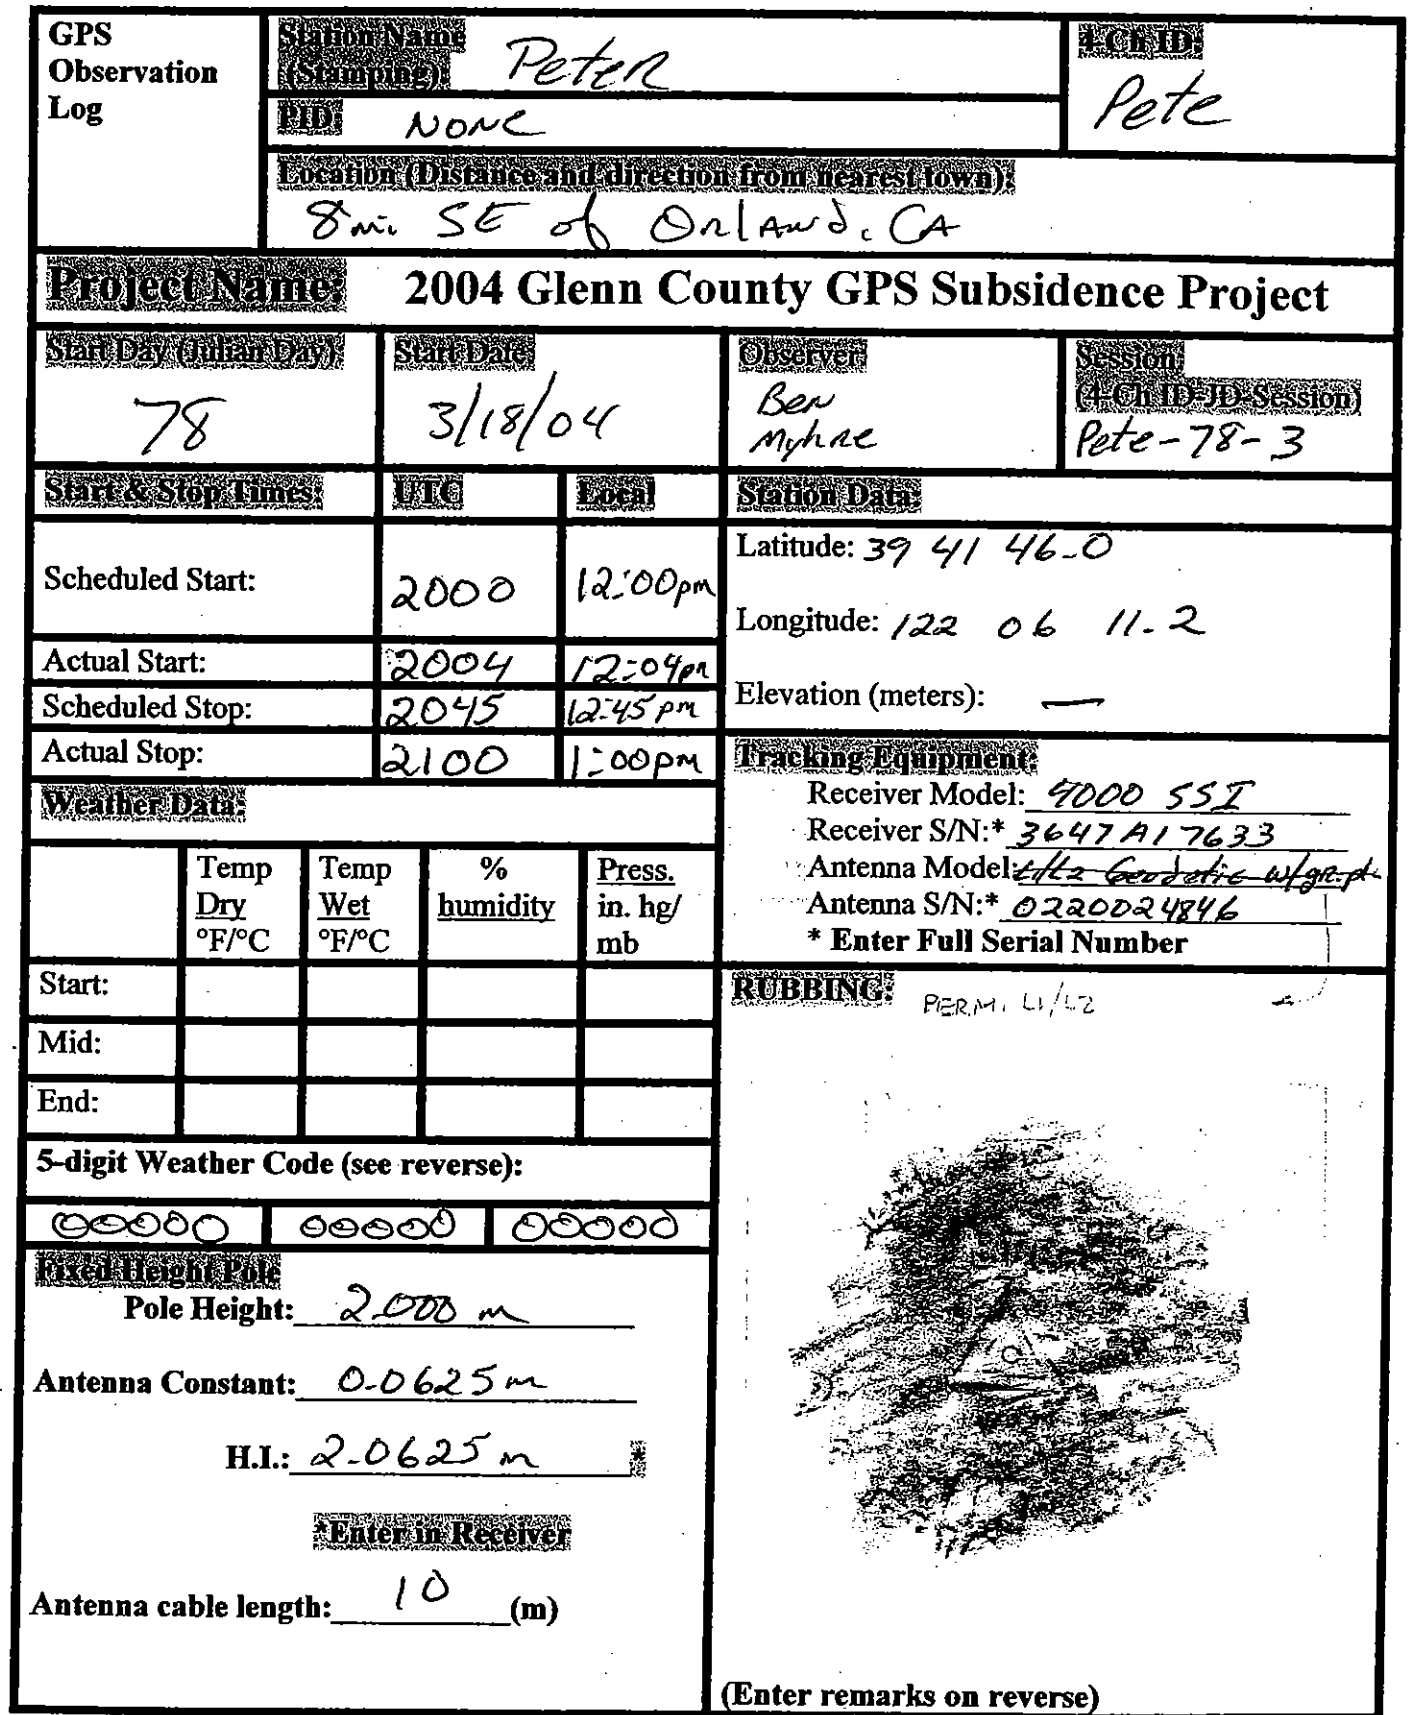 GPS
Observation
Log
Station Name
(Stamping): Peter
4-Ch ID:
Pete
PID: NONE
Location (Distance and direction from nearest town):
8 mi. SE of Orland, CA
Project Name: 2004 Glenn County GPS Subsidence Project
Start Day (Julian Day)
78
Start Date
3/18/04
Observer
Ben
Myhre
Session
(4-Ch ID-JD-Session)
Pete-78-3
Start & Stop Times: UTC Local
Scheduled Start: 2000 12:00pm
Actual Start: 2004 12:04pm
Scheduled Stop: 2045 12:45pm
Actual Stop: 2100 1:00pm
Station Data:
Latitude: 39 41 46.0
Longitude: 122 06 11.2
Elevation (meters): —
Tracking Equipment:
Receiver Model: 4000 SSI
Receiver S/N:* 3647A17633
Antenna Model: L1/L2 Geodetic w/gr.pl.
Antenna S/N:* 0220024846
* Enter Full Serial Number
Weather Data:
Temp
Dry
°F/°C
Temp
Wet
°F/°C
%
humidity
Press.
in. hg/
mb
Start:
Mid:
End:
5-digit Weather Code (see reverse):
00000 00000 00000
Fixed Height Pole
Pole Height: 2.000 m
Antenna Constant: 0.0625 m
H.I.: 2.0625 m *
*Enter in Receiver
Antenna cable length: 10 (m)
RUBBING: PERM. L1/L2
(Enter remarks on reverse)